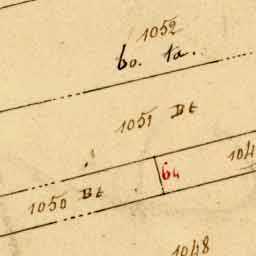 1052
bo. ta.
1051 Bt
104
1050 Bt
1048